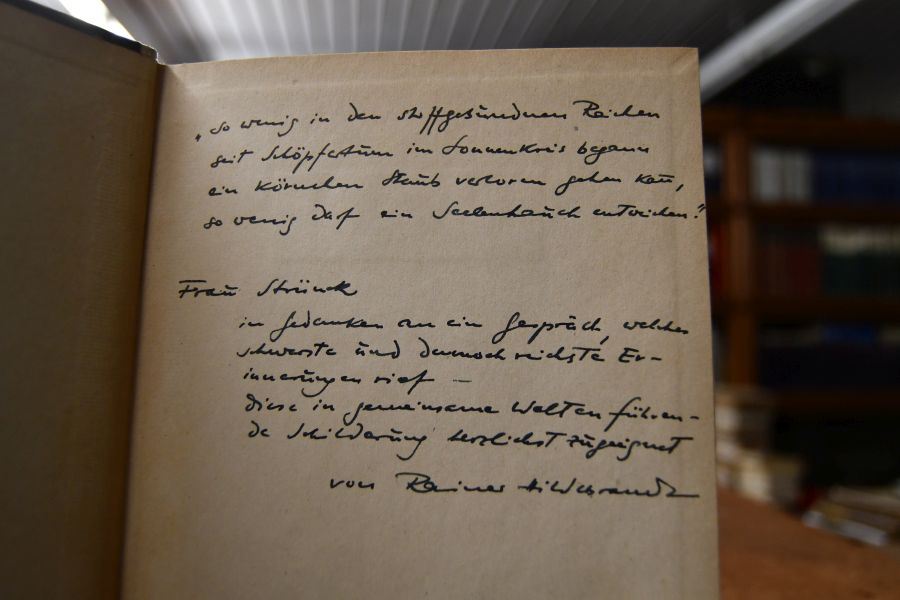 „So wenig in den stoffgebundnen Reichen
seit Schöpfertum im Sonnenkreis begann
ein Körnchen Staub verloren gehen kan,
so wenig darf ein Seelenhauch entweichen."
Frau Strünck
in Gedanken an ein Gespräch, welches
schwerste und dennoch reichste Er-
innerungen rief –
diese in gemeinsame Welten führen-
de Schilderung herzlichst zugeeignet
von Rainer Hildebrandt